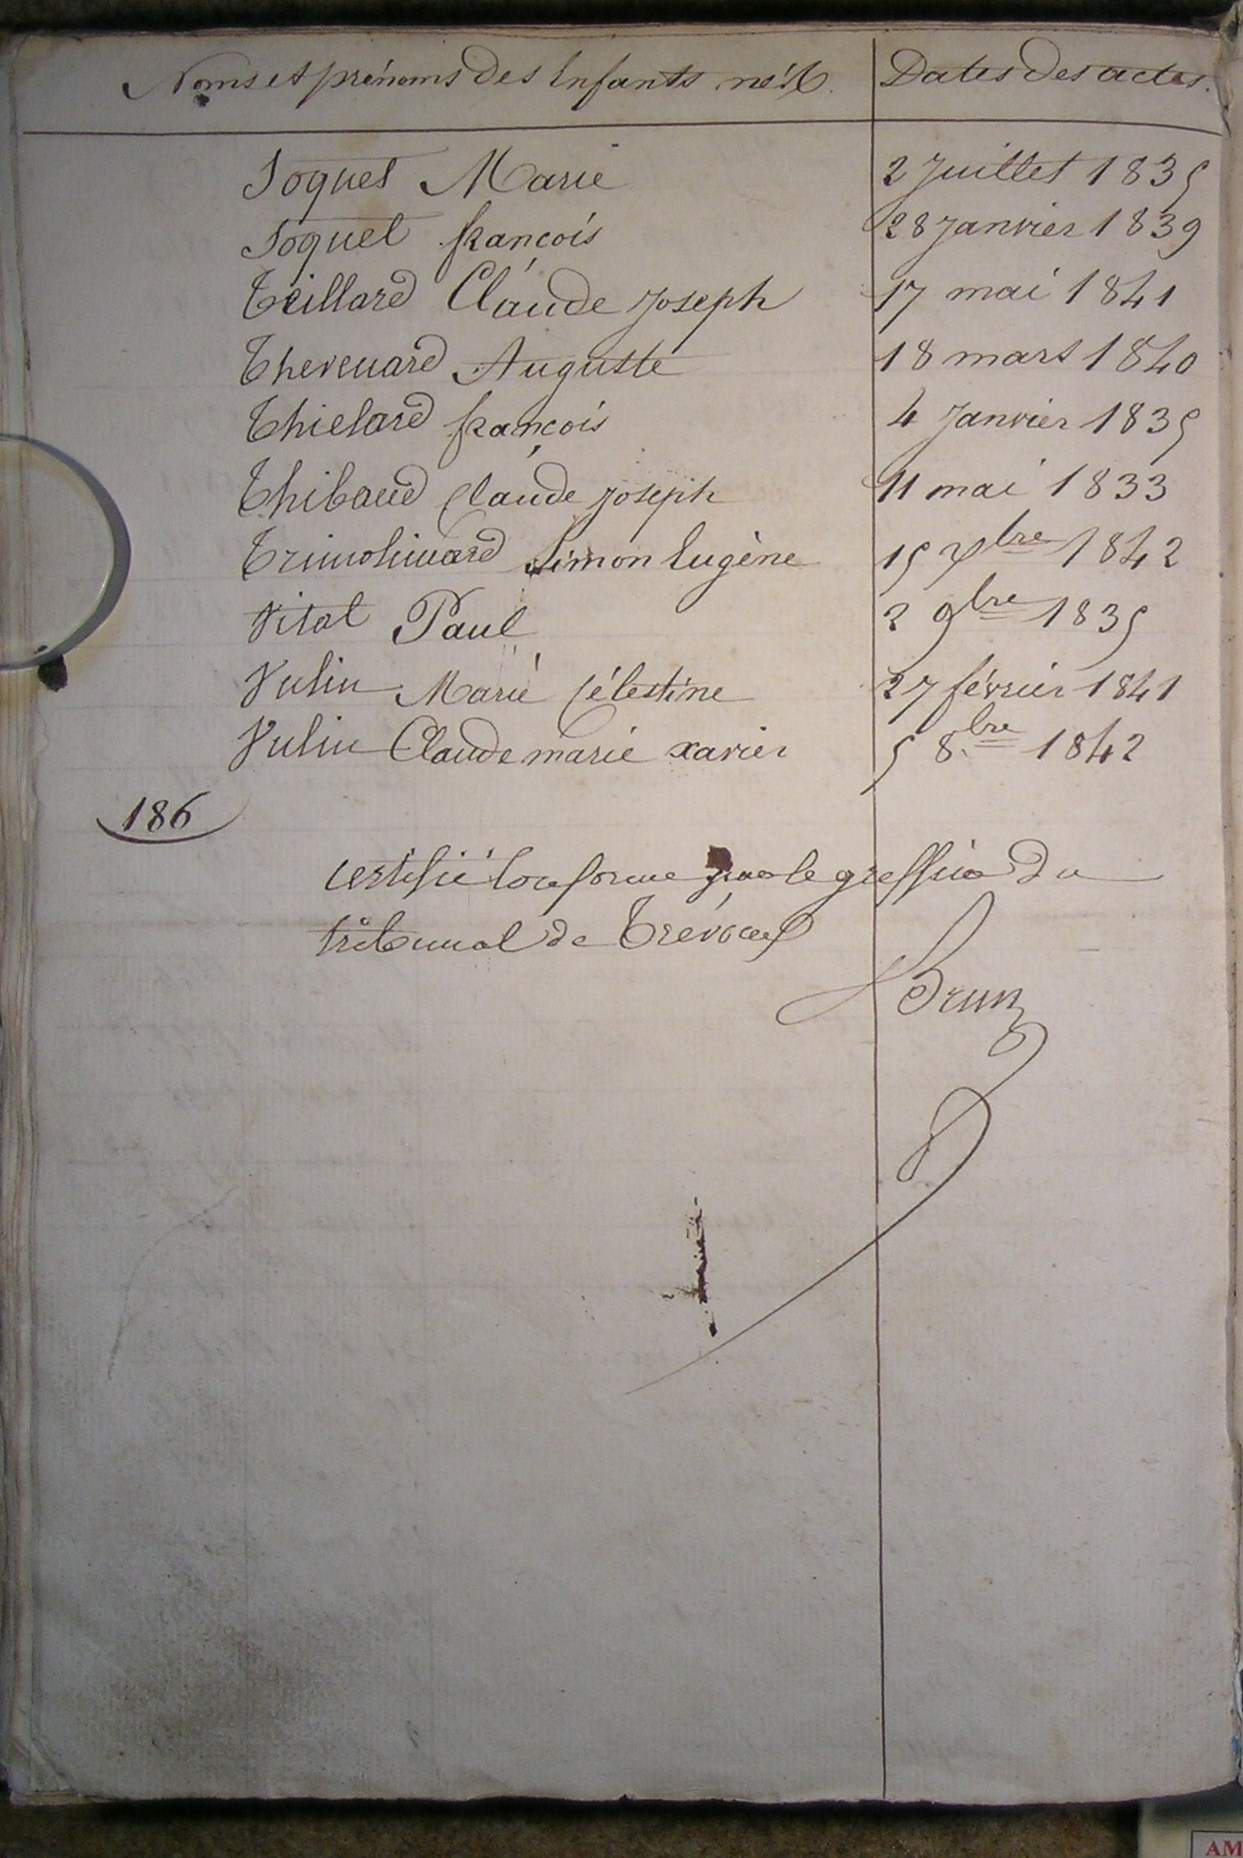 Noms et prénoms des Enfants nés. Dates des actes.
Soquet Marie 2 Juillet 1835
Soquet françois 28 Janvier 1839
Teillard Claude Joseph 17 mai 1841
Thevenard Auguste 18 mars 1840
Thielard françois 4 Janvier 1835
Thibaud Claude Joseph 11 mai 1833
Simon Eugène 15 Xbre 1842
Vital Paul 2 9bre 1835
Vulin Marie Célestine 27 février 1841
Vulin Claude marie xavier 5 8bre 1842
186
certifié Conforme par le greffier Du
tribunal de Trévoux
Brun
AM